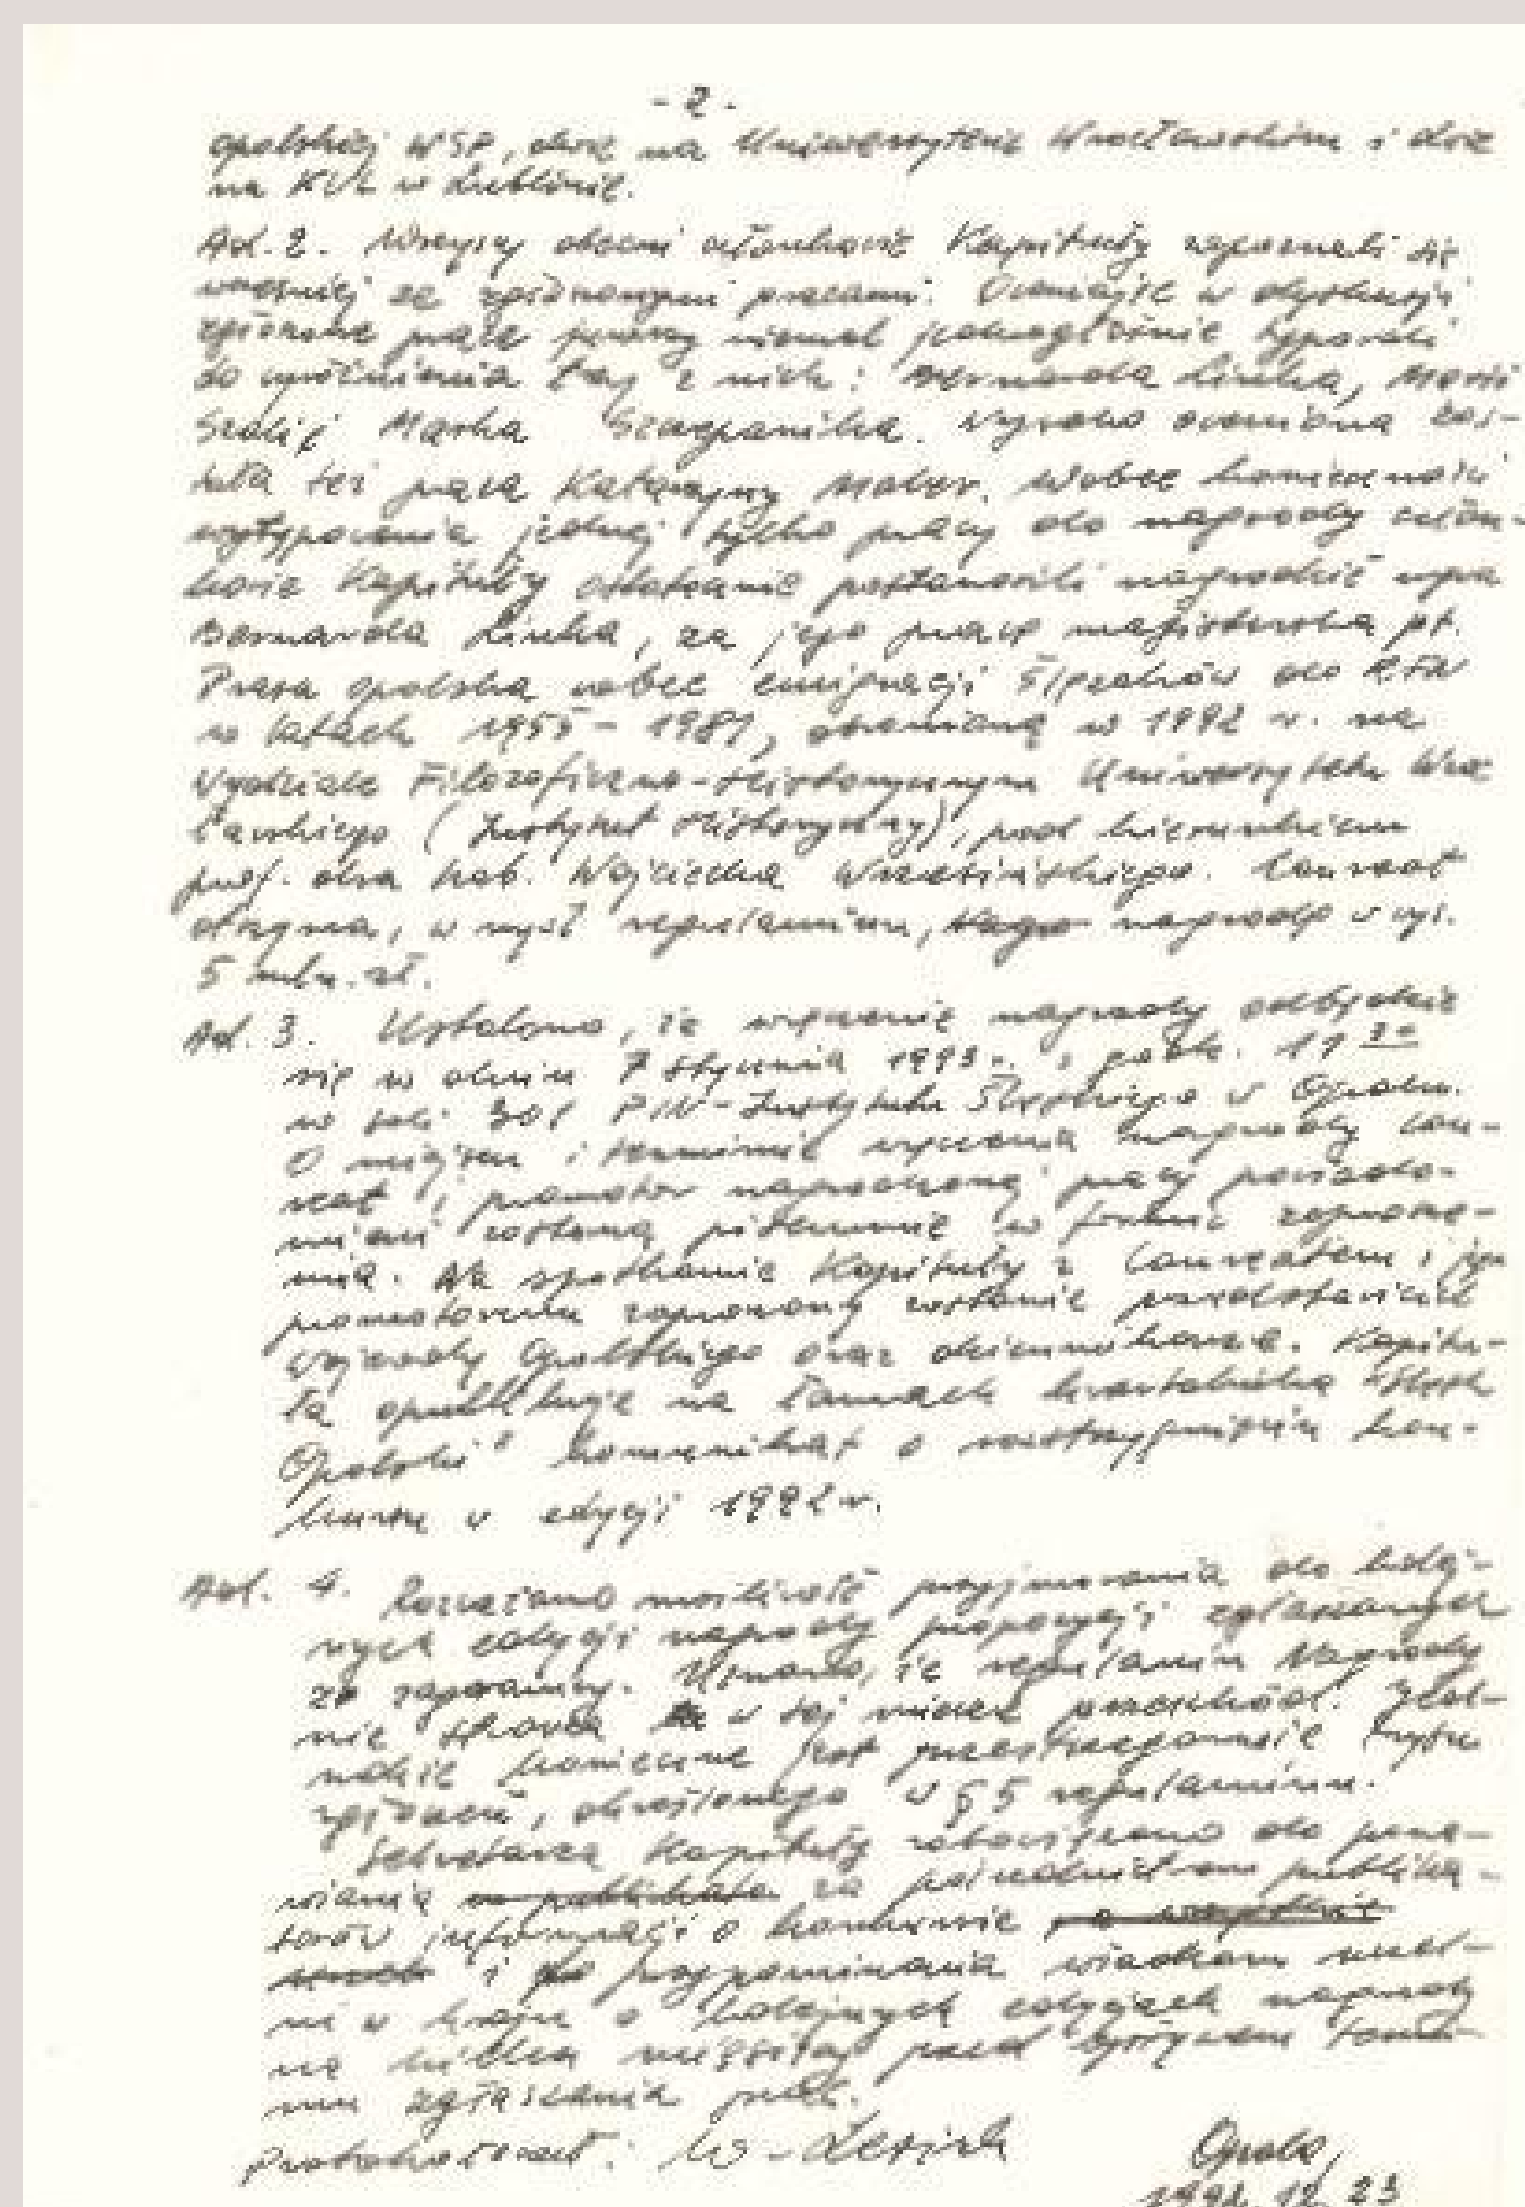 - 2 -
opolskiej WSP, dwie na Uniwersytecie Wrocławskim i dwie
na KUL w Lublinie.
Ad. 2. Wszyscy obecni członkowie Kapituły zapoznali się
wcześniej ze zgłoszonymi pracami. Oceniając w dyskusji
zgłoszone prace jurorzy niemal jednogłośnie typowali
do wyróżnienia trzy z nich: Bernarda Linka, Marii
Szolij Marka Szczepanika. Wysoko oceniona zos-
tała też praca Katarzyny Mober. Wobec konieczności
wytypowania jednej tylko pracy do nagrody człon-
kowie Kapituły ostatecznie postanowili nagrodzić mgra
Bernarda Linka, za jego pracę magisterską pt.
Prasa opolska wobec emigracji Ślązaków do RFN
w latach 1955 - 1981, obronioną w 1992 r. na
Wydziale Filozoficzno-Historycznym Uniwersytetu Wroc
ławskiego (Instytut Historyczny), pod kierunkiem
prof. dra hab. Wojciecha Wrzesińskiego. Laureat
otrzyma, w myśl regulaminu, nagrodę w wys.
5 mln. zł.
Ad. 3. Ustalono, że wręczenie nagrody odbędzie
się w dniu 7 stycznia 1993 r. o godz. 11 30
w sali 301 PIN-Instytutu Śląskiego w Opolu.
O miejscu i terminie wręczenia nagrody lau-
reat i promotor nagrodzonej pracy powiado-
mieni zostaną pisemnie w formie zaprosze-
nia. Na spotkanie Kapituły z laureatem i jego
promotorem zaproszony zostanie przedstawiciel
Wojewody Opolskiego oraz dziennikarze. Kapitu-
ła opublikuje na łamach kwartalnika "Śląsk
Opolski" komunikat o rozstrzygnięciu kon-
kursu w edycji 1992 r.
Ad. 4. Rozważano możliwość przyjmowania do kolej-
nych edycji nagrody propozycji zgłaszanych
ze zagranicy. Uznano, że regulamin Nagrody
nie stwarza w tej mierze przeszkód. Jed-
nakże konieczne jest przestrzeganie trybu
zgłoszeń, określonego w § 5 regulaminu.
Sekretarza Kapituły zobowiązano do pona-
wiania za pośrednictwem publika-
torów informacji o konkursie
i przypominania władzom uczel-
ni w kraju o kolejnych edycjach nagrody
na kilka miesięcy przed upływem termi-
nu zgłaszania prac.
Protokołował: W. Lesiuk Opole,
1992.12.23